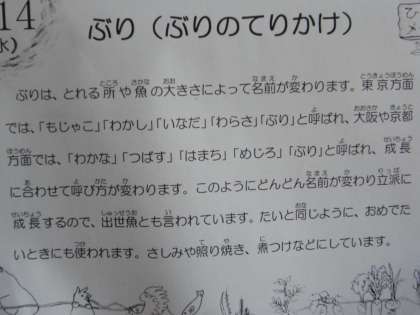 14
水)
ぶり（ぶりのてりかけ）
ぶりは、とれる所や魚の大きさによって名前が変わります。東京方面
では、「もじゃこ」「わかし」「いなだ」「わらさ」「ぶり」と呼ばれ、大阪や京都
方面では、「わかな」「つばす」「はまち」「めじろ」「ぶり」と呼ばれ、成長
に合わせて呼び方が変わります。このようにどんどん名前が変わり立派に
成長するので、出世魚とも言われています。たいと同じように、おめでた
いときにも使われます。さしみや照り焼き、煮つけなどにしています。